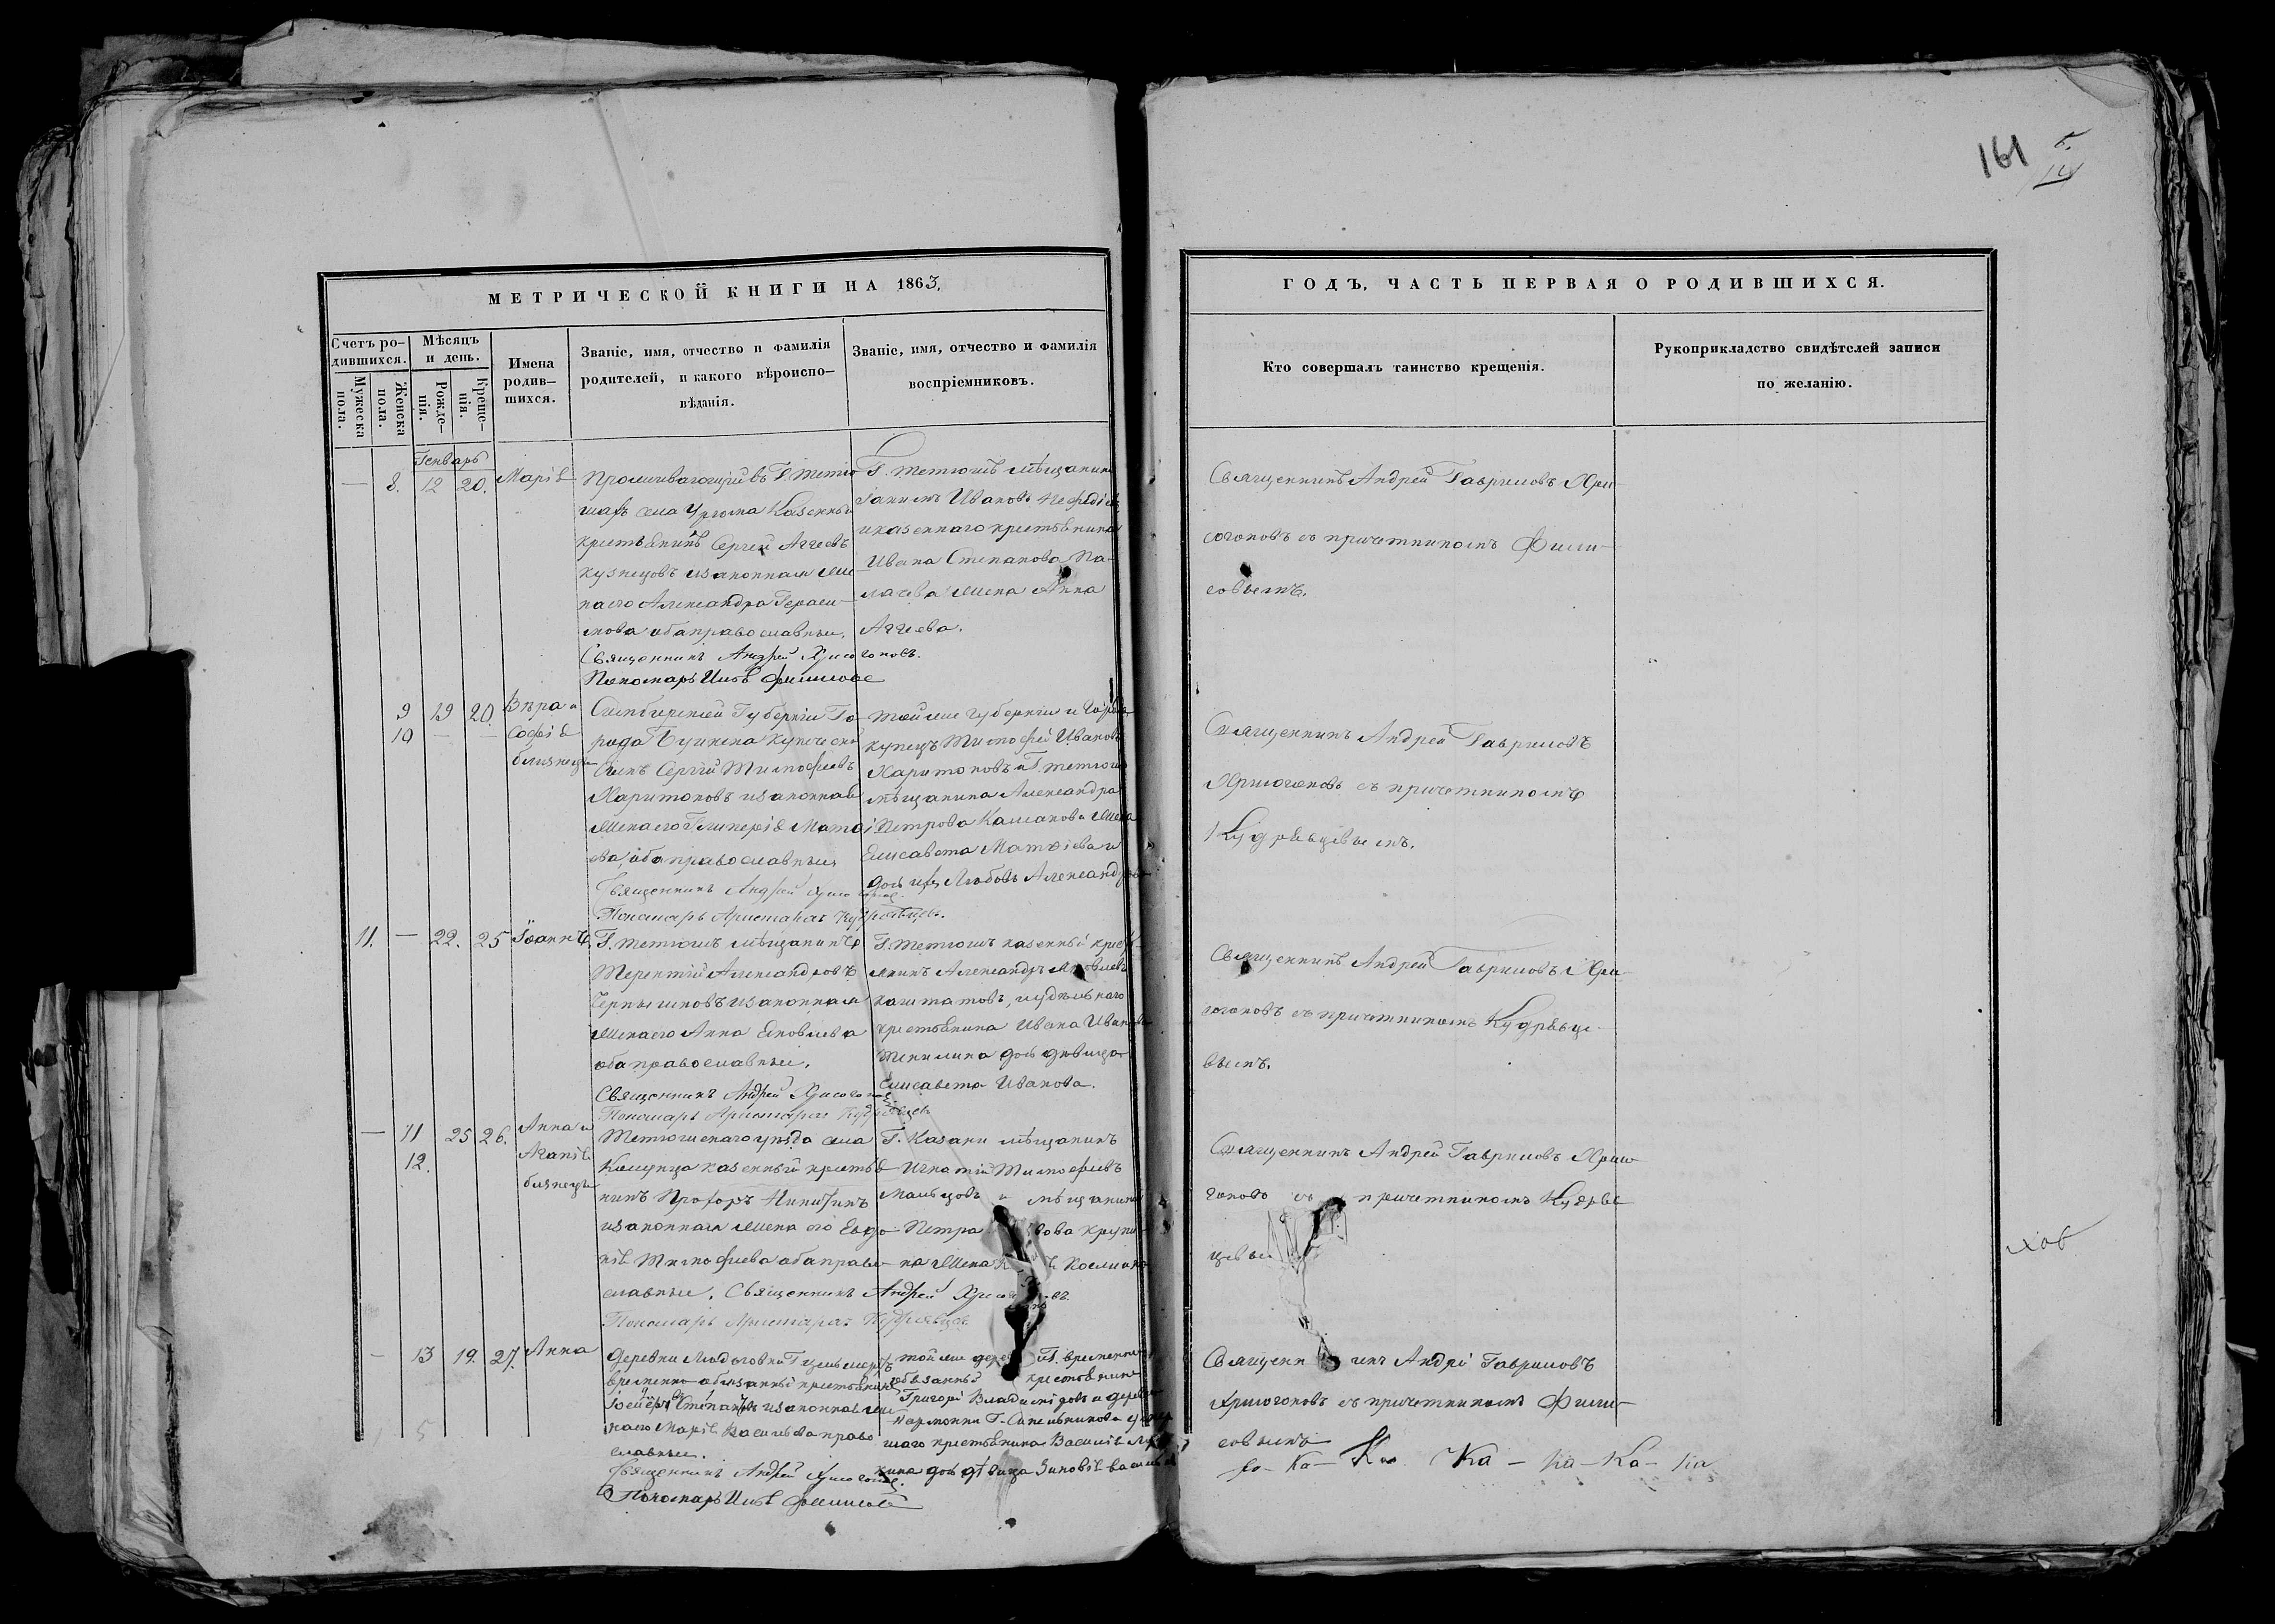 161
МЕТРИЧЕСКОЙ КНИГИ НА 1863.
Счетъ ро-
дившихся.
Мужеска
пола.
Женска
пола.
Мѣсяцъ
и день.
Рожде-
нія.
Креще-
нія.
Имена
родив-
шихся.
Званіе, имя, отчество и фамилія
родителей, и какого вѣроиспо-
вѣданія.
Званіе, имя, отчество и фамилія
воспріемниковъ.
ГОДЪ, ЧАСТЬ ПЕРВАЯ О РОДИВШИХСЯ.
Кто совершалъ таинство крещенія.
Рукоприкладство свидѣтелей записи
по желанію.
Генварь
— 8. 12 20. Марія
Проживающій въ Г. Тетю-
шахъ села Казенный
крестьянинъ Сергей Аггеевъ
Кузнецовъ изаконная же-
наего Александра Гераси-
мова оба православные.
Священникъ Андрей Хрисогоновъ.
Пономарь
Г. Тетюшъ мѣщанинъ
Іакимъ Ивановъ
иказеннаго крестьянина
Ивана Степанова Па-
лачева жена Анна
Аггеева.
Священникъ Андрей Гавриловъ Хри-
согоновъ съ причетникомъ Фили-
совымъ.
9 19 20. Вѣра и
10 — — Софія
близнецы
Симбирской Губерніи Го-
рода Буинска Купеческій
сынъ Сергій Тимофеевъ
Харитоновъ изаконная
женаего Гликерія Матѳі-
ева оба православные
Священникъ Андрей Хрисогоновъ
Пономарь Аристархъ Кудрявцевъ.
тойже губерніи и города
купецъ Тимофей Ивановъ
Харитоновъ и Г. Тетюшъ
мѣщанина Александра
Петрова жена
Елисавета Матѳіева и
дочь ихъ Любовь Александрова
Священникъ Андрей Гавриловъ
Хрисогоновъ съ причетникомъ
Кудрявцевымъ.
11. — 22. 25 Іоаннъ.
Г. Тетюшъ мѣщанинъ
Терентій Александровъ
Чернышковъ изаконная
женаего Анна Яковлева
оба православные.
Священникъ Андрей Хрисогоновъ
Пономарь Аристархъ Кудрявцевъ
Г. Тетюшъ казенный кресть-
янинъ Александръ Яковлевъ
иудѣльнаго
крестьянина Ивана Иванова
дочь дѣвица
Елисавета Иванова.
Священникъ Андрей Гавриловъ Хри-
согоновъ съ причетникомъ Кудрявце-
вымъ.
— 11 25 26. Анна и
12. Агапія
близнецы
Тетюшскаго уѣзда села
казенный крестья-
нинъ Прохоръ Никитинъ
изаконная жена его Евдо-
кія Тимофеева оба право-
славные. Священникъ Андрей
Пономарь Аристархъ Кудрявцевъ
Г. Казани мѣщанинъ
Игнатій Тимофеевъ
и мѣщанина
Петра
жена
Священникъ Андрей Гавриловъ Хрисо-
гоновъ съ причетникомъ Кудряв-
цевы
— 13 19. 27. Анна
Деревни
временно обязанный крестьянинъ
Степановъ изаконная же-
наего Марія Васильева право-
славные.
Священникъ Андрей Хрисогоновъ.
Пономарь
тойже временно
обязанный крестьянинъ
Григорій
крестьянина Василія
дочь дѣвица Зиновія
Священникъ Андрей Гавриловъ
Хрисогоновъ съ причетникомъ Фили-
совымъ
Ка - Ка - Ка - Ка